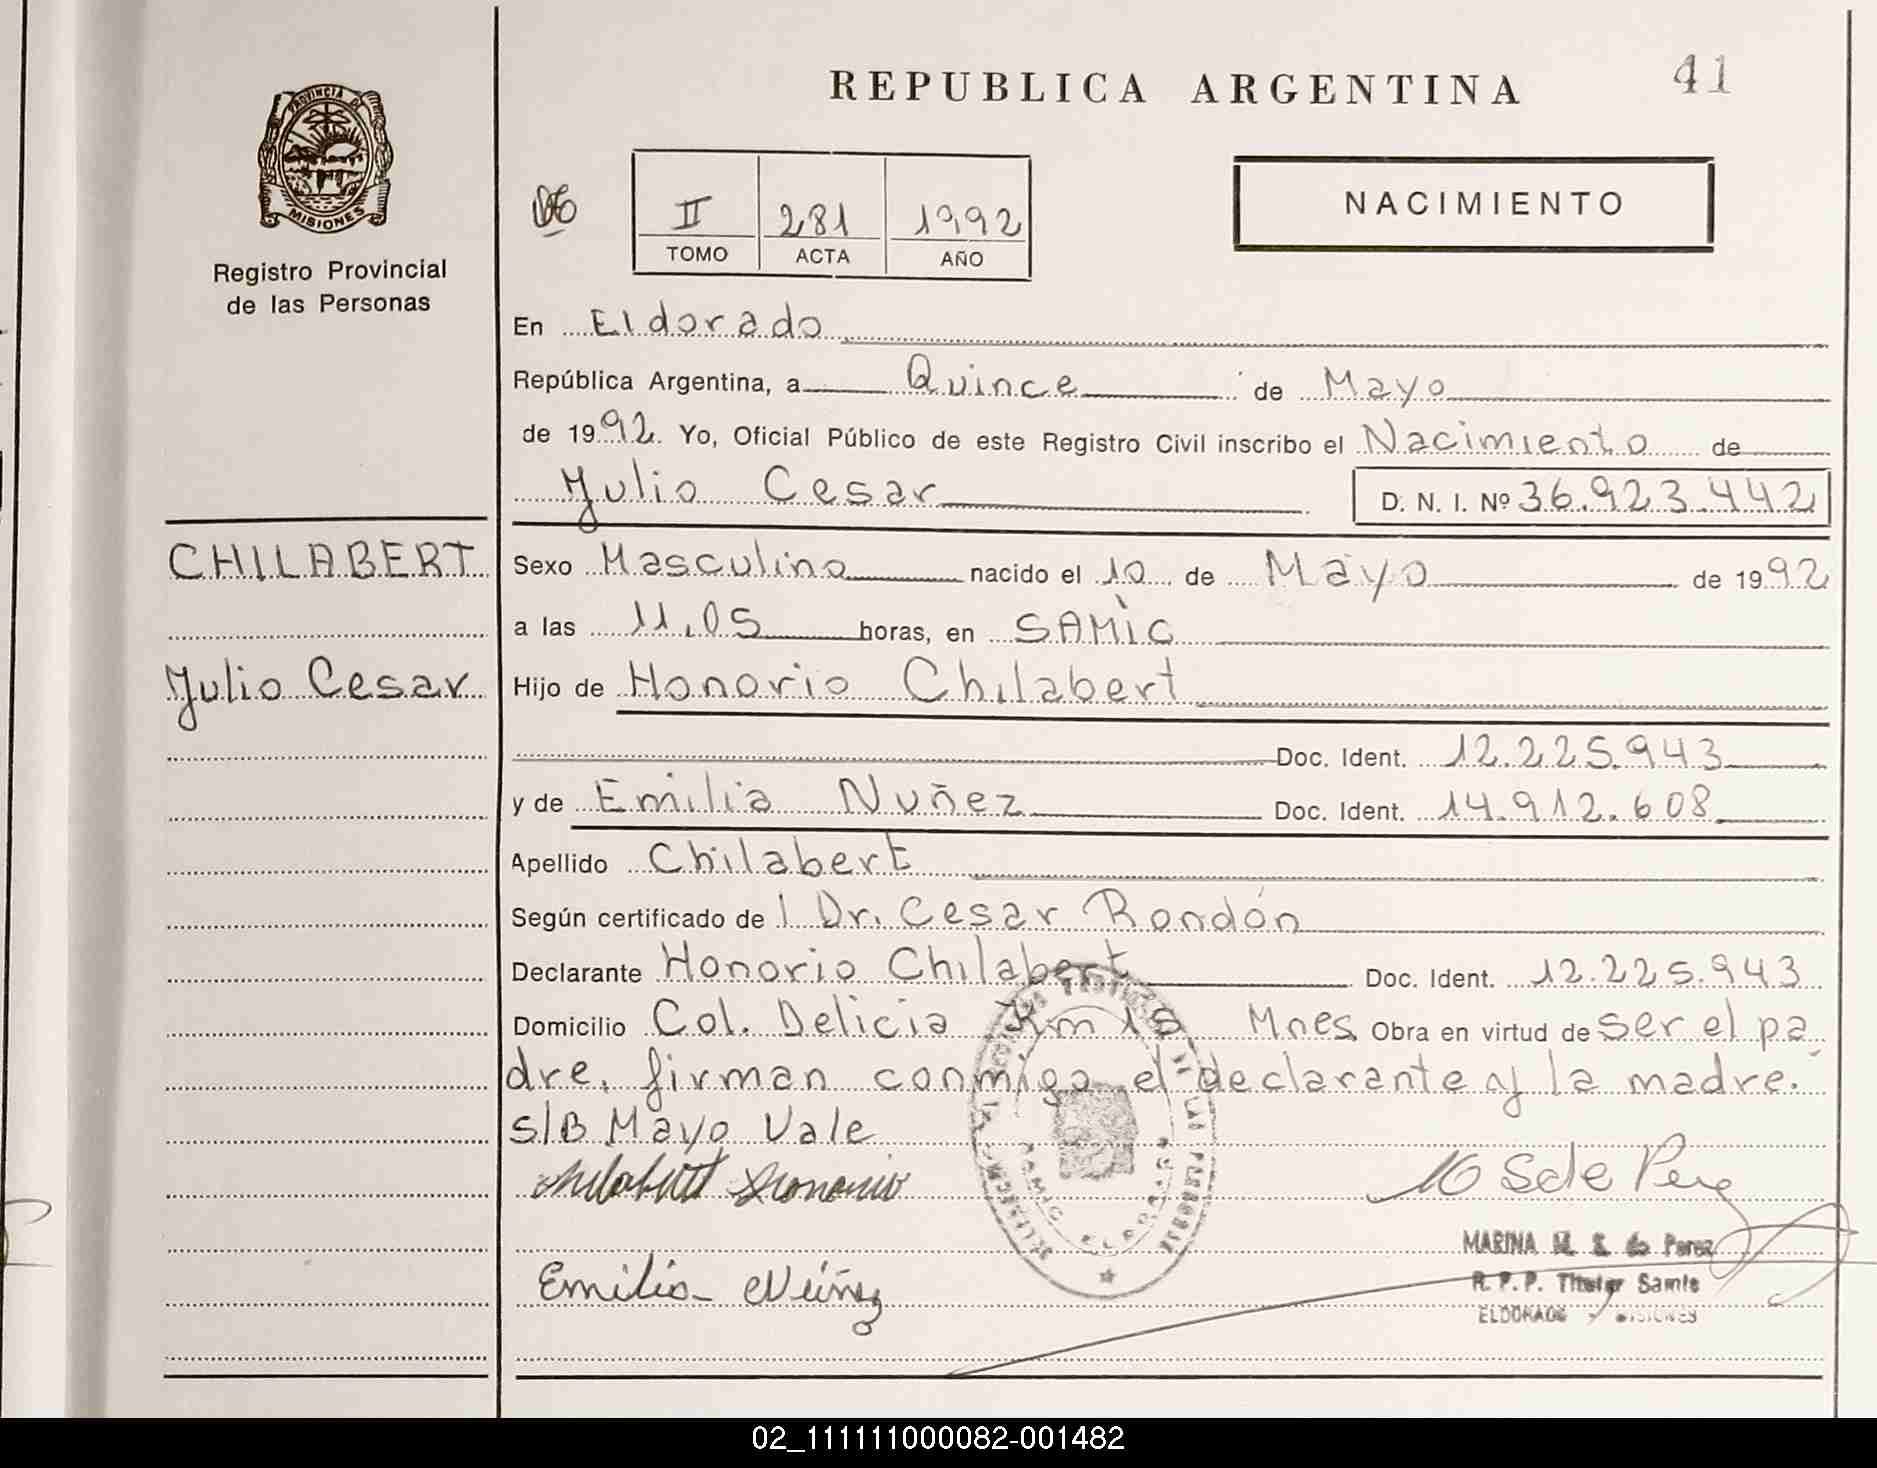 REPUBLICA ARGENTINA 41
PROVINCIA DE
MISIONES
Registro Provincial
de las Personas
II 281 1992
TOMO ACTA AÑO
NACIMIENTO
En Eldorado
República Argentina, a Quince de Mayo
de 1992 Yo, Oficial Público de este Registro Civil inscribo el Nacimiento de
Julio Cesar D. N. I. Nº 36.923.442
CHILABERT
Julio Cesar
Sexo Masculino nacido el 10 de Mayo de 1992
a las 11,05 horas, en SAMIC
Hijo de Honorio Chilabert
Doc. Ident. 12.225.943
y de Emilia Nuñez Doc. Ident. 14.912.608
Apellido Chilabert
Según certificado de l Dr. Cesar Rondón
Declarante Honorio Chilabert Doc. Ident. 12.225.943
Domicilio Col. Delicia Km 10 Mnes Obra en virtud de ser el pa
dre, firman conmigo el declarante y la madre.
s/B Mayo Vale
Chilabert Honorio
Emilia Núñez
MARINA M. S. de Perez
R. P. P. Titular Samic
ELDORADO MISIONES
02_111111000082-001482